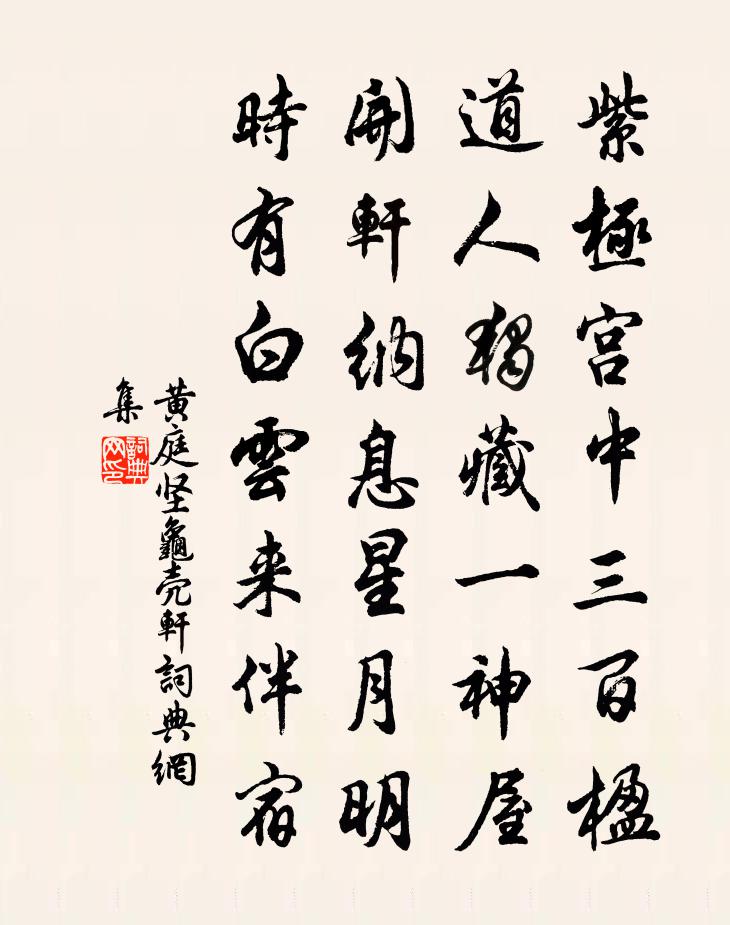 紫極宫中三百楹
道人独藏一神屋
開軒納息星月明
時有白雲来伴宿
黄庭坚龜壳軒詞典網
集
詞典網印